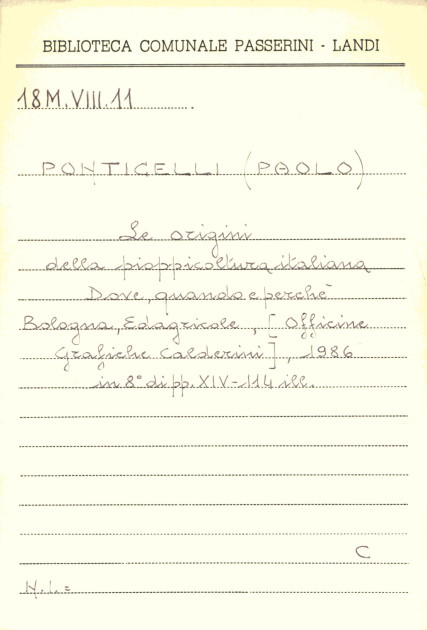 BIBLIOTECA COMUNALE PASSERINI - LANDI
18M.VIII.11
PONTICELLI (PAOLO)
Le origini
della pioppicoltura italiana
Dove, quando e perchè
Bologna, Edagricole, [Officine
Grafiche Calderini], 1986
in 8° di pp. XIV-114 ill.
C
N.I.=